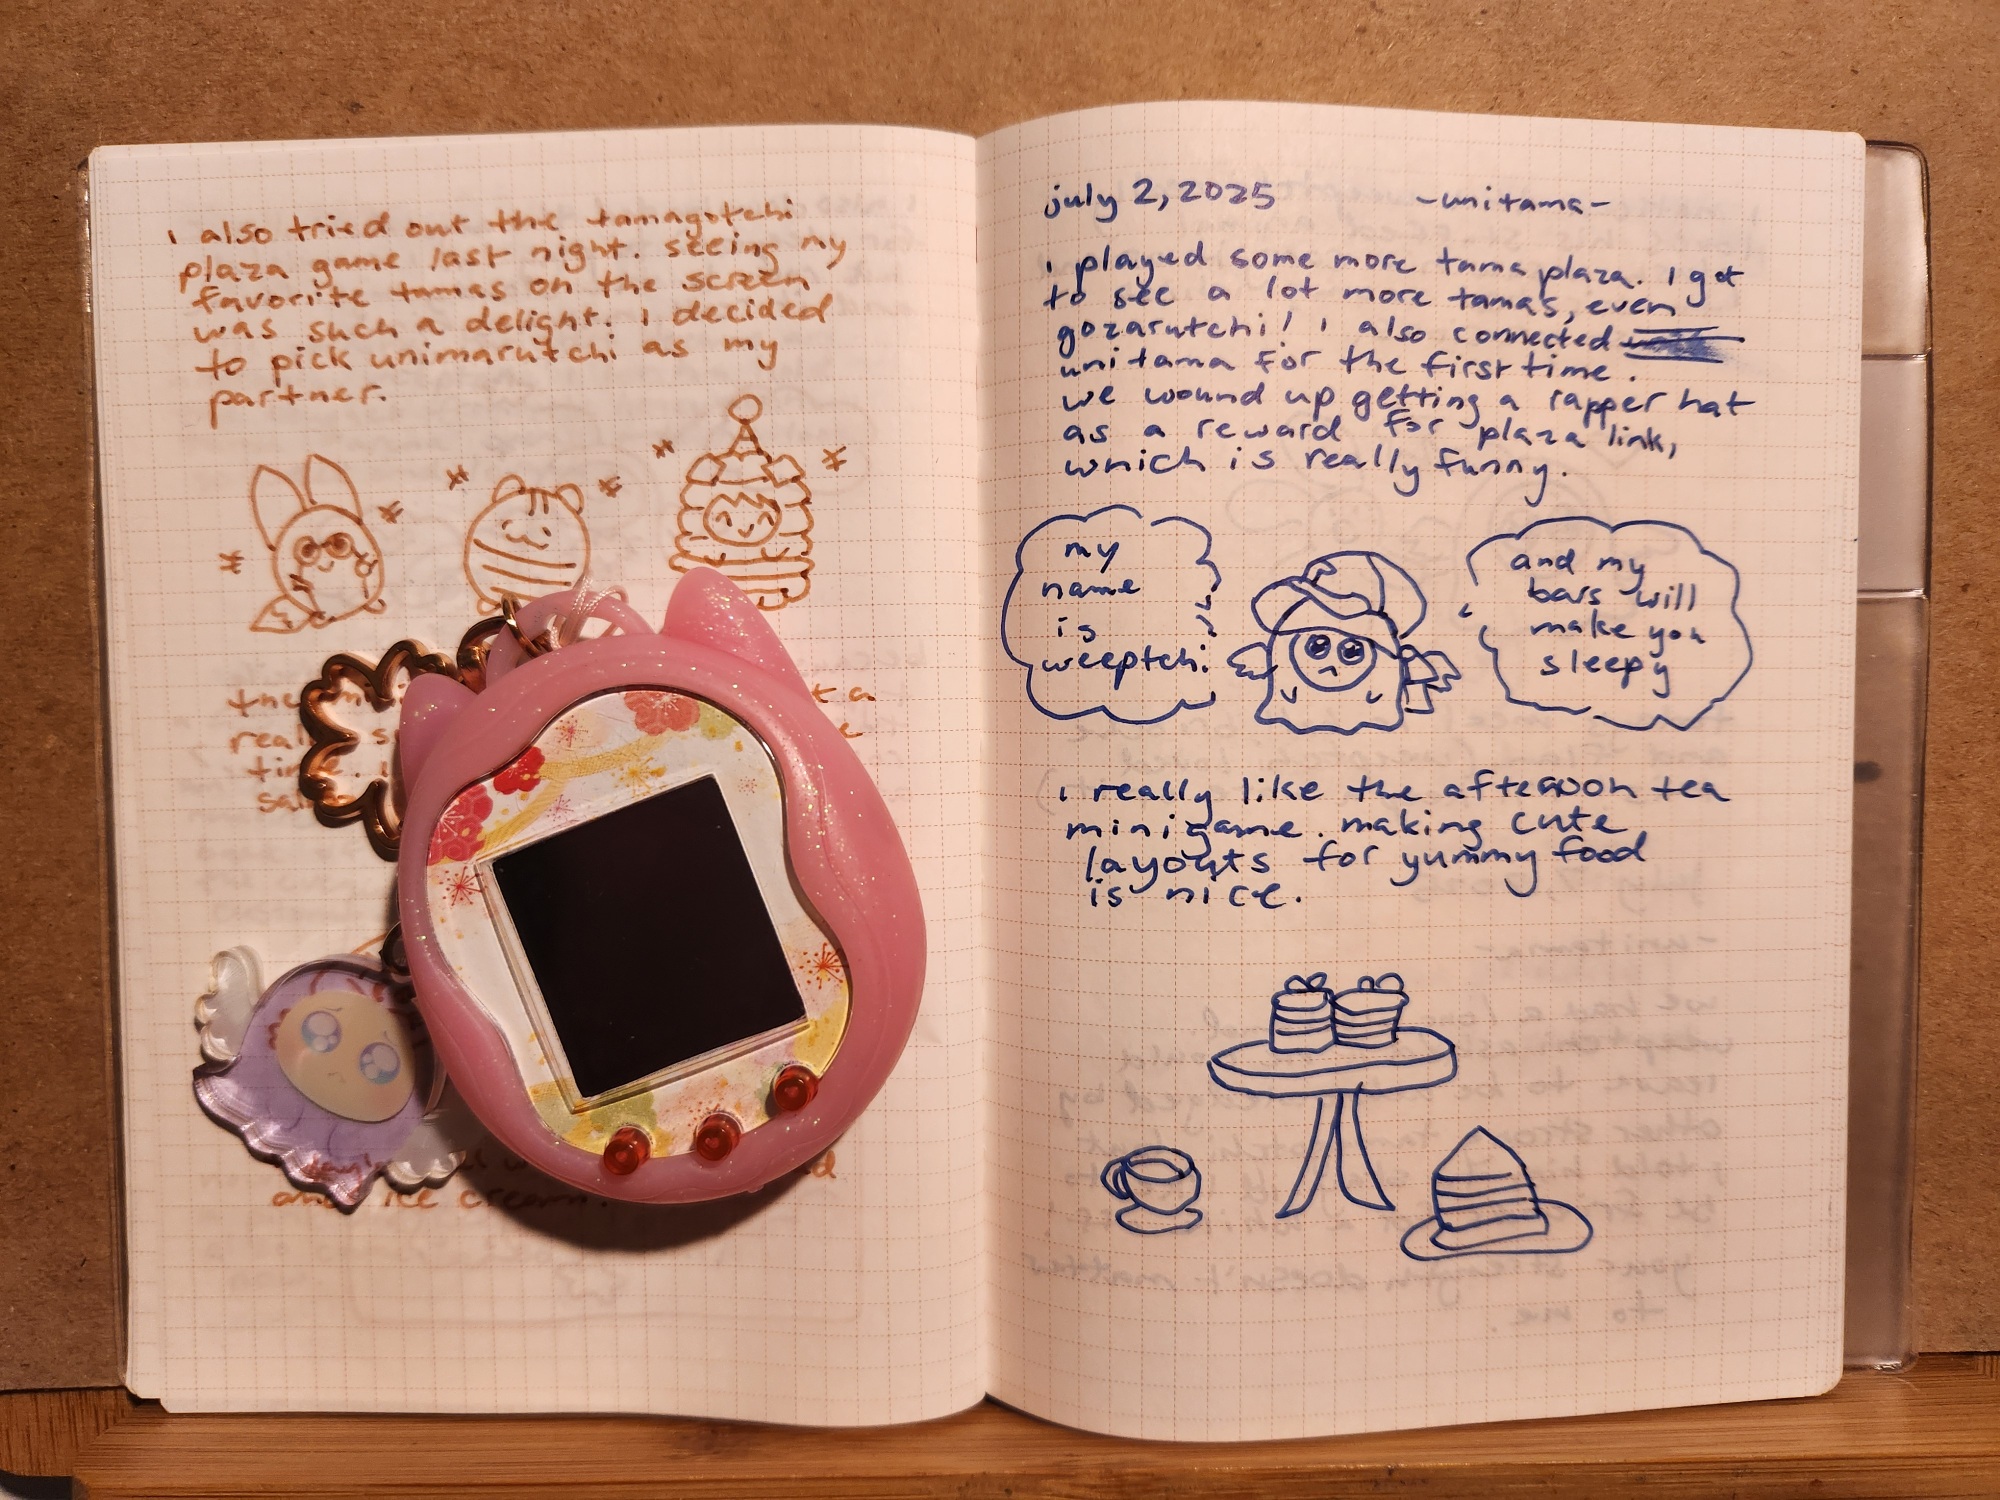 i also tried out the tamagotchi
plaza game last night. seeing my
favorite tamas on the screen
was such a delight. i decided
to pick unimarutchi as my
partner.
the
a
time
and ice cream.
july 2, 2025 -unitama-
i played some more tama plaza. i got
to see a lot more tamas, even
gozarutchi! i also connected
unitama for the first time.
we wound up getting a rapper hat
as a reward for plaza link,
which is really funny.
my
name
is
weeptchi
and my
bars will
make you
sleepy
i really like the afternoon tea
minigame. making cute
layouts for yummy food
is nice.